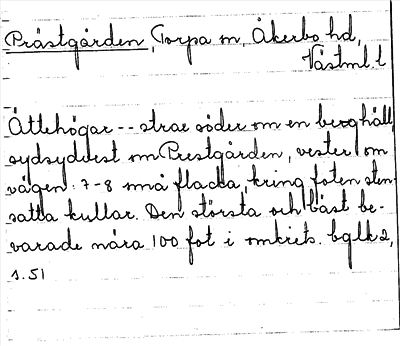 Prästgården, Torpa sn, Åkerbo hd,
Västml. l
Ättehögar -- strax söder om en berghäll,
sydsydvest om Prestgården, vester om
vägen. 7-8 små flacka, kring foten sten-
satta kullar. Den största och bäst be-
varade nära 100 fot i omkrets. bglk 2,
s. 51